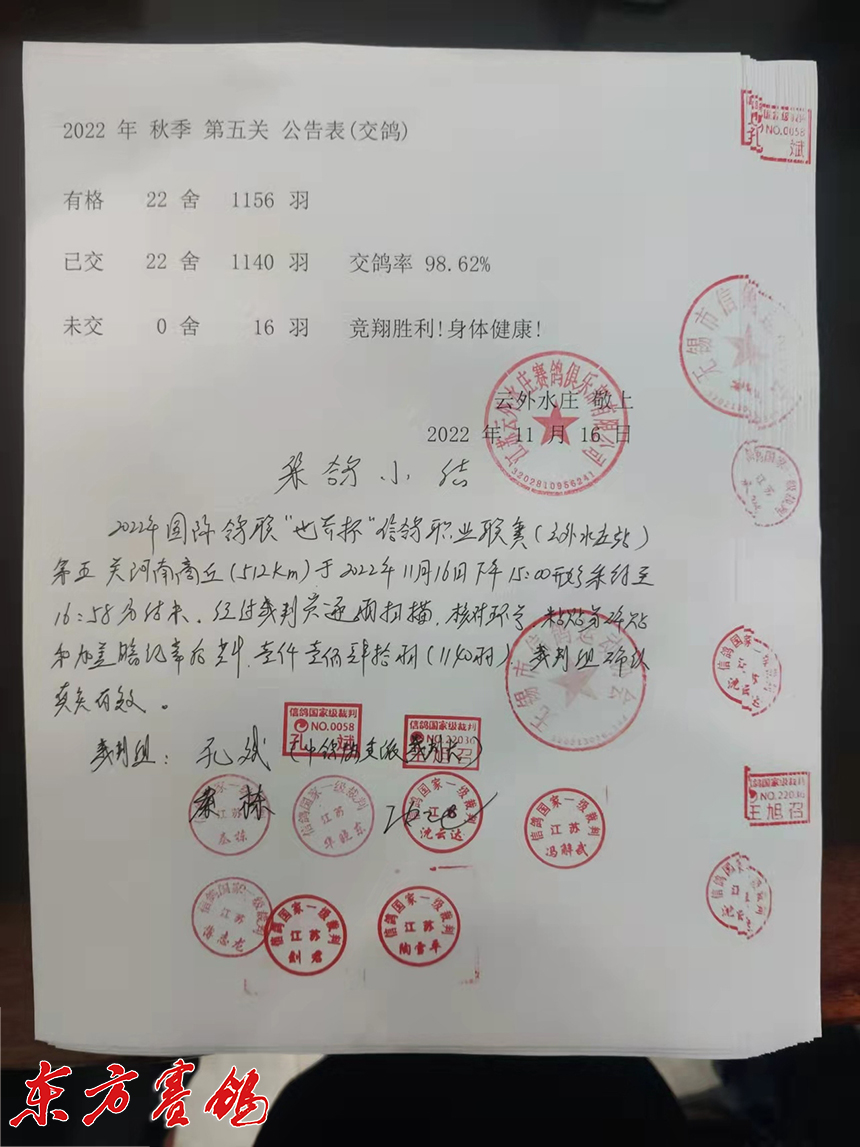 2022 年 秋季 第五关 公告表(交鸽)
有格 22 舍 1156 羽
已交 22 舍 1140 羽 交鸽率 98.62%
未交 0 舍 16 羽 竞翔胜利!身体健康!
云外水庄 敬上
2022 年 11 月 16 日
江苏云外水庄赛鸽俱乐部有限公司
3202810956241
集鸽小结
2022年国际鸽联"杯"信鸽职业联赛(云外水庄站)
第五关河南商丘(512km)于2022年11月16日下午15:00开始集鸽至
16:58分结束。经过裁判员通过扫描,核对环号,
和加盖暗记章后共 壹仟壹佰肆拾羽(1140羽)。裁判组确认
真实有效。
裁判组: 孔斌
信鸽国家级裁判
NO.0058
孔 斌
信鸽国家级裁判
NO.22036
王旭召
无锡市信鸽
信鸽国家一级裁判
江苏
秦栋
信鸽国家一级裁判
江苏
华晓东
信鸽国家一级裁判
江苏
沈云达
信鸽国家一级裁判
江苏
冯解武
信鸽国家一级裁判
江苏
信鸽国家一级裁判
江苏
刘君
信鸽国家一级裁判
江苏
陶雪平
国家级裁判
NO.0058
孔斌
无锡市信鸽
信鸽国家一级裁判
江苏
信鸽国家一级裁判
江苏
沈云达
信鸽国家级裁判
NO.22036
王旭召
信鸽国家一级裁判
东方赛鸽